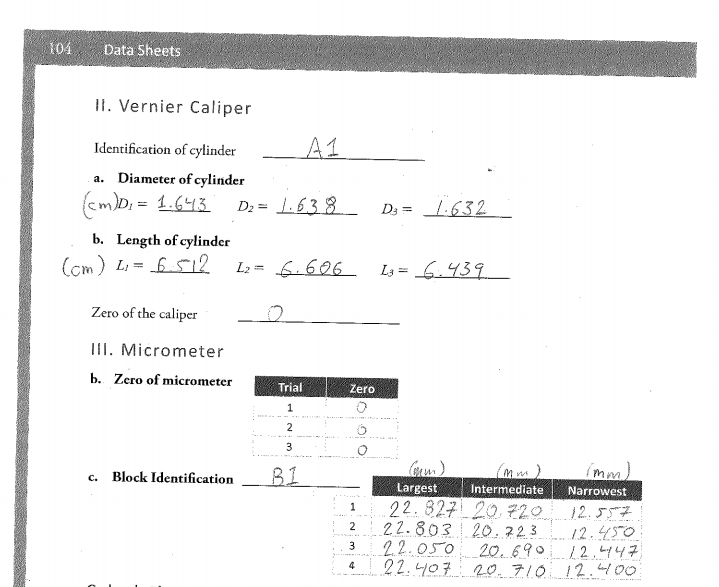 104 Data Sheets
II. Vernier Caliper
Identification of cylinder A1
a. Diameter of cylinder
(cm) D₁ = 1.643 D₂ = 1.638 D₃ = 1.632
b. Length of cylinder
(cm) L₁ = 6.512 L₂ = 6.606 L₃ = 6.439
Zero of the caliper 0
III. Micrometer
b. Zero of micrometer
Trial Zero
1 0
2 0
3 0
(mm) (mm) (mm)
c. Block Identification B1
Largest Intermediate Narrowest
1 22.827 20.720 12.557
2 22.803 20.723 12.450
3 22.050 20.690 12.447
4 22.407 20.710 12.400